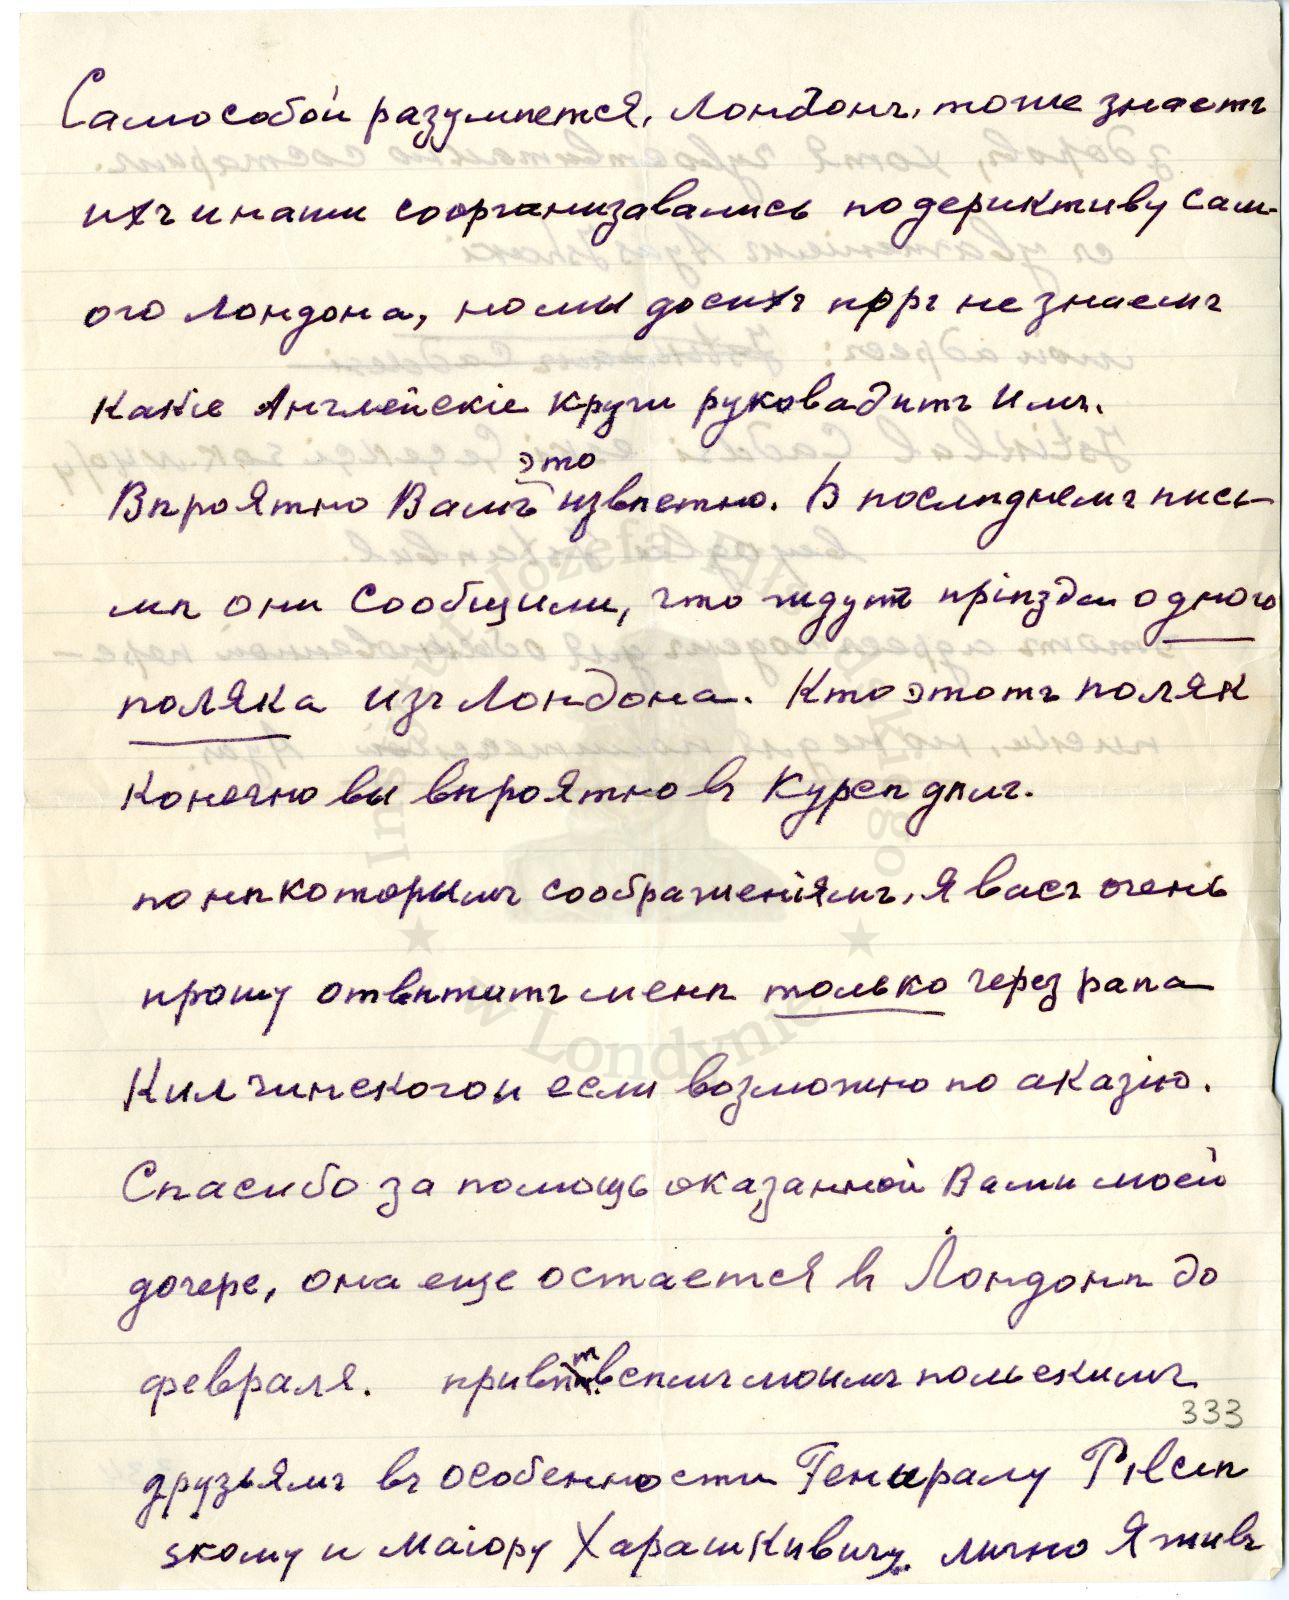 Самособой разумѣется, Лондонъ, тоже знаетъ
ихъ и наши соорганизавались по дериктиву сам-
ого Лондона, но мы досихъ поръ не знаемъ
какіе Английскіе круги руковадитъ имъ.
это
Вѣроятно Вамъ извѣстно. В послѣднемъ пись-
мѣ они сообщили, что ждутъ пріѣзда одного
поляка изъ Лондона. Кто этотъ поляк
конечно вы вѣроятно въ Курсѣ дѣлъ.
по нѣкоторымъ соображеніямъ, я васъ очень
прошу отвѣтить менѣ только через рапа
Килчинскогои если возможно по аказію.
Спасибо за помощь оказанной Вами моей
дочере, она еще остается в Лондонѣ до
февраля. привѣт всѣмъ моимъ полскимъ
333
друзьямъ въ особенности Генералу
скому и маіору Харашкивичу. лично Я живъ
Instytut Józefa Piłsudskiego
w Londynie